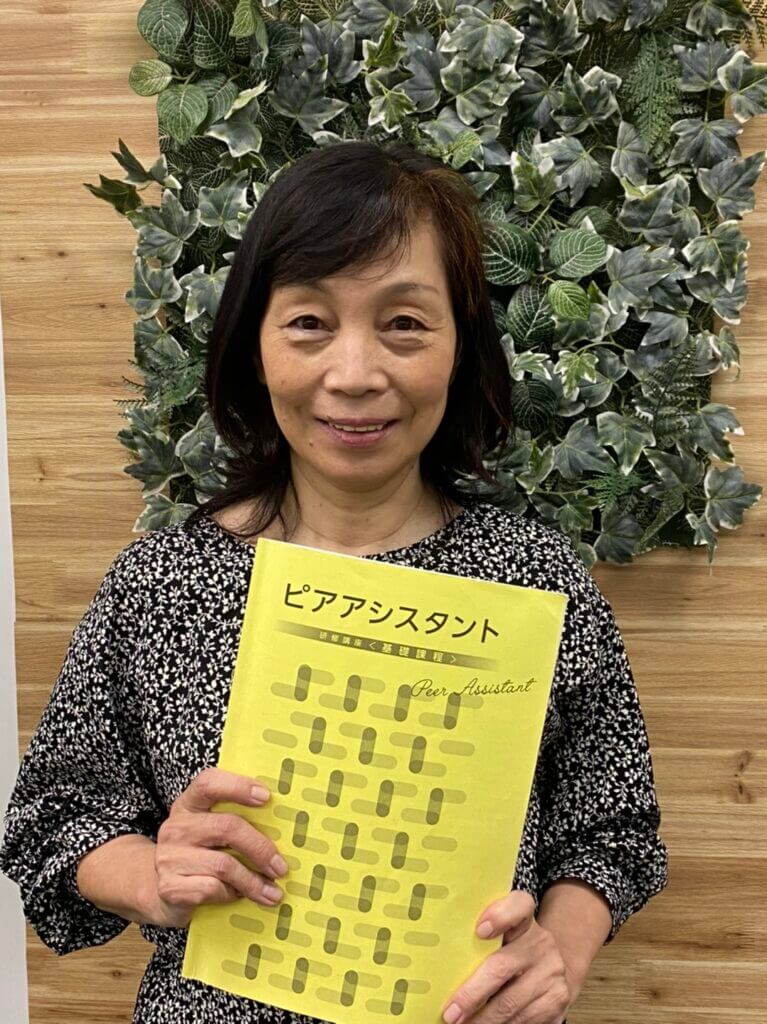 ピアアシスタント
研修講座〈基礎課程〉
Peer Assistant